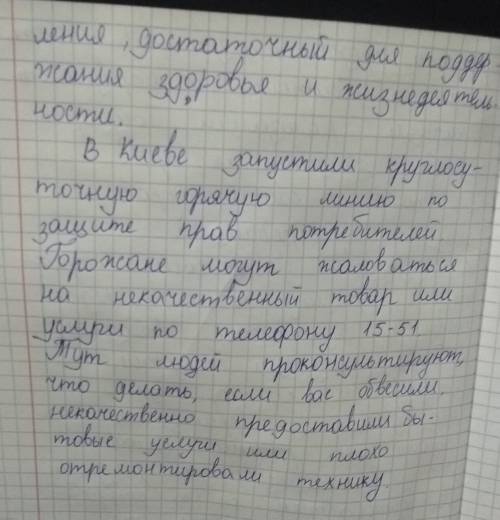 ления, достаточный для поддер
жания здоровья и жизнедеятель
ности.
В Киеве запустили круглосу-
точную горячую линию по
защите прав потребителей
Горожане могут жаловаться
на некачественный товар или
услуги по телефону 15-51.
Тут людей проконсультируют,
что делать, если вас обвесили,
некачественно предоставили бы-
товые услуги или плохо
отремонтировали технику.